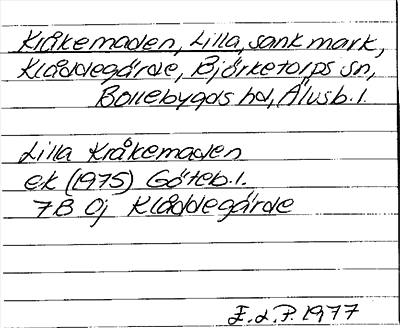 Kråkemaden, Lilla, sank mark,
Klåddegärde, Björketorps sn,
Bollebygds hd, Älvsb. l.
Lilla Kråkemaden
ek (1975) Göteb. l.
7B 0j Klåddegärde
E. L. P. 1977